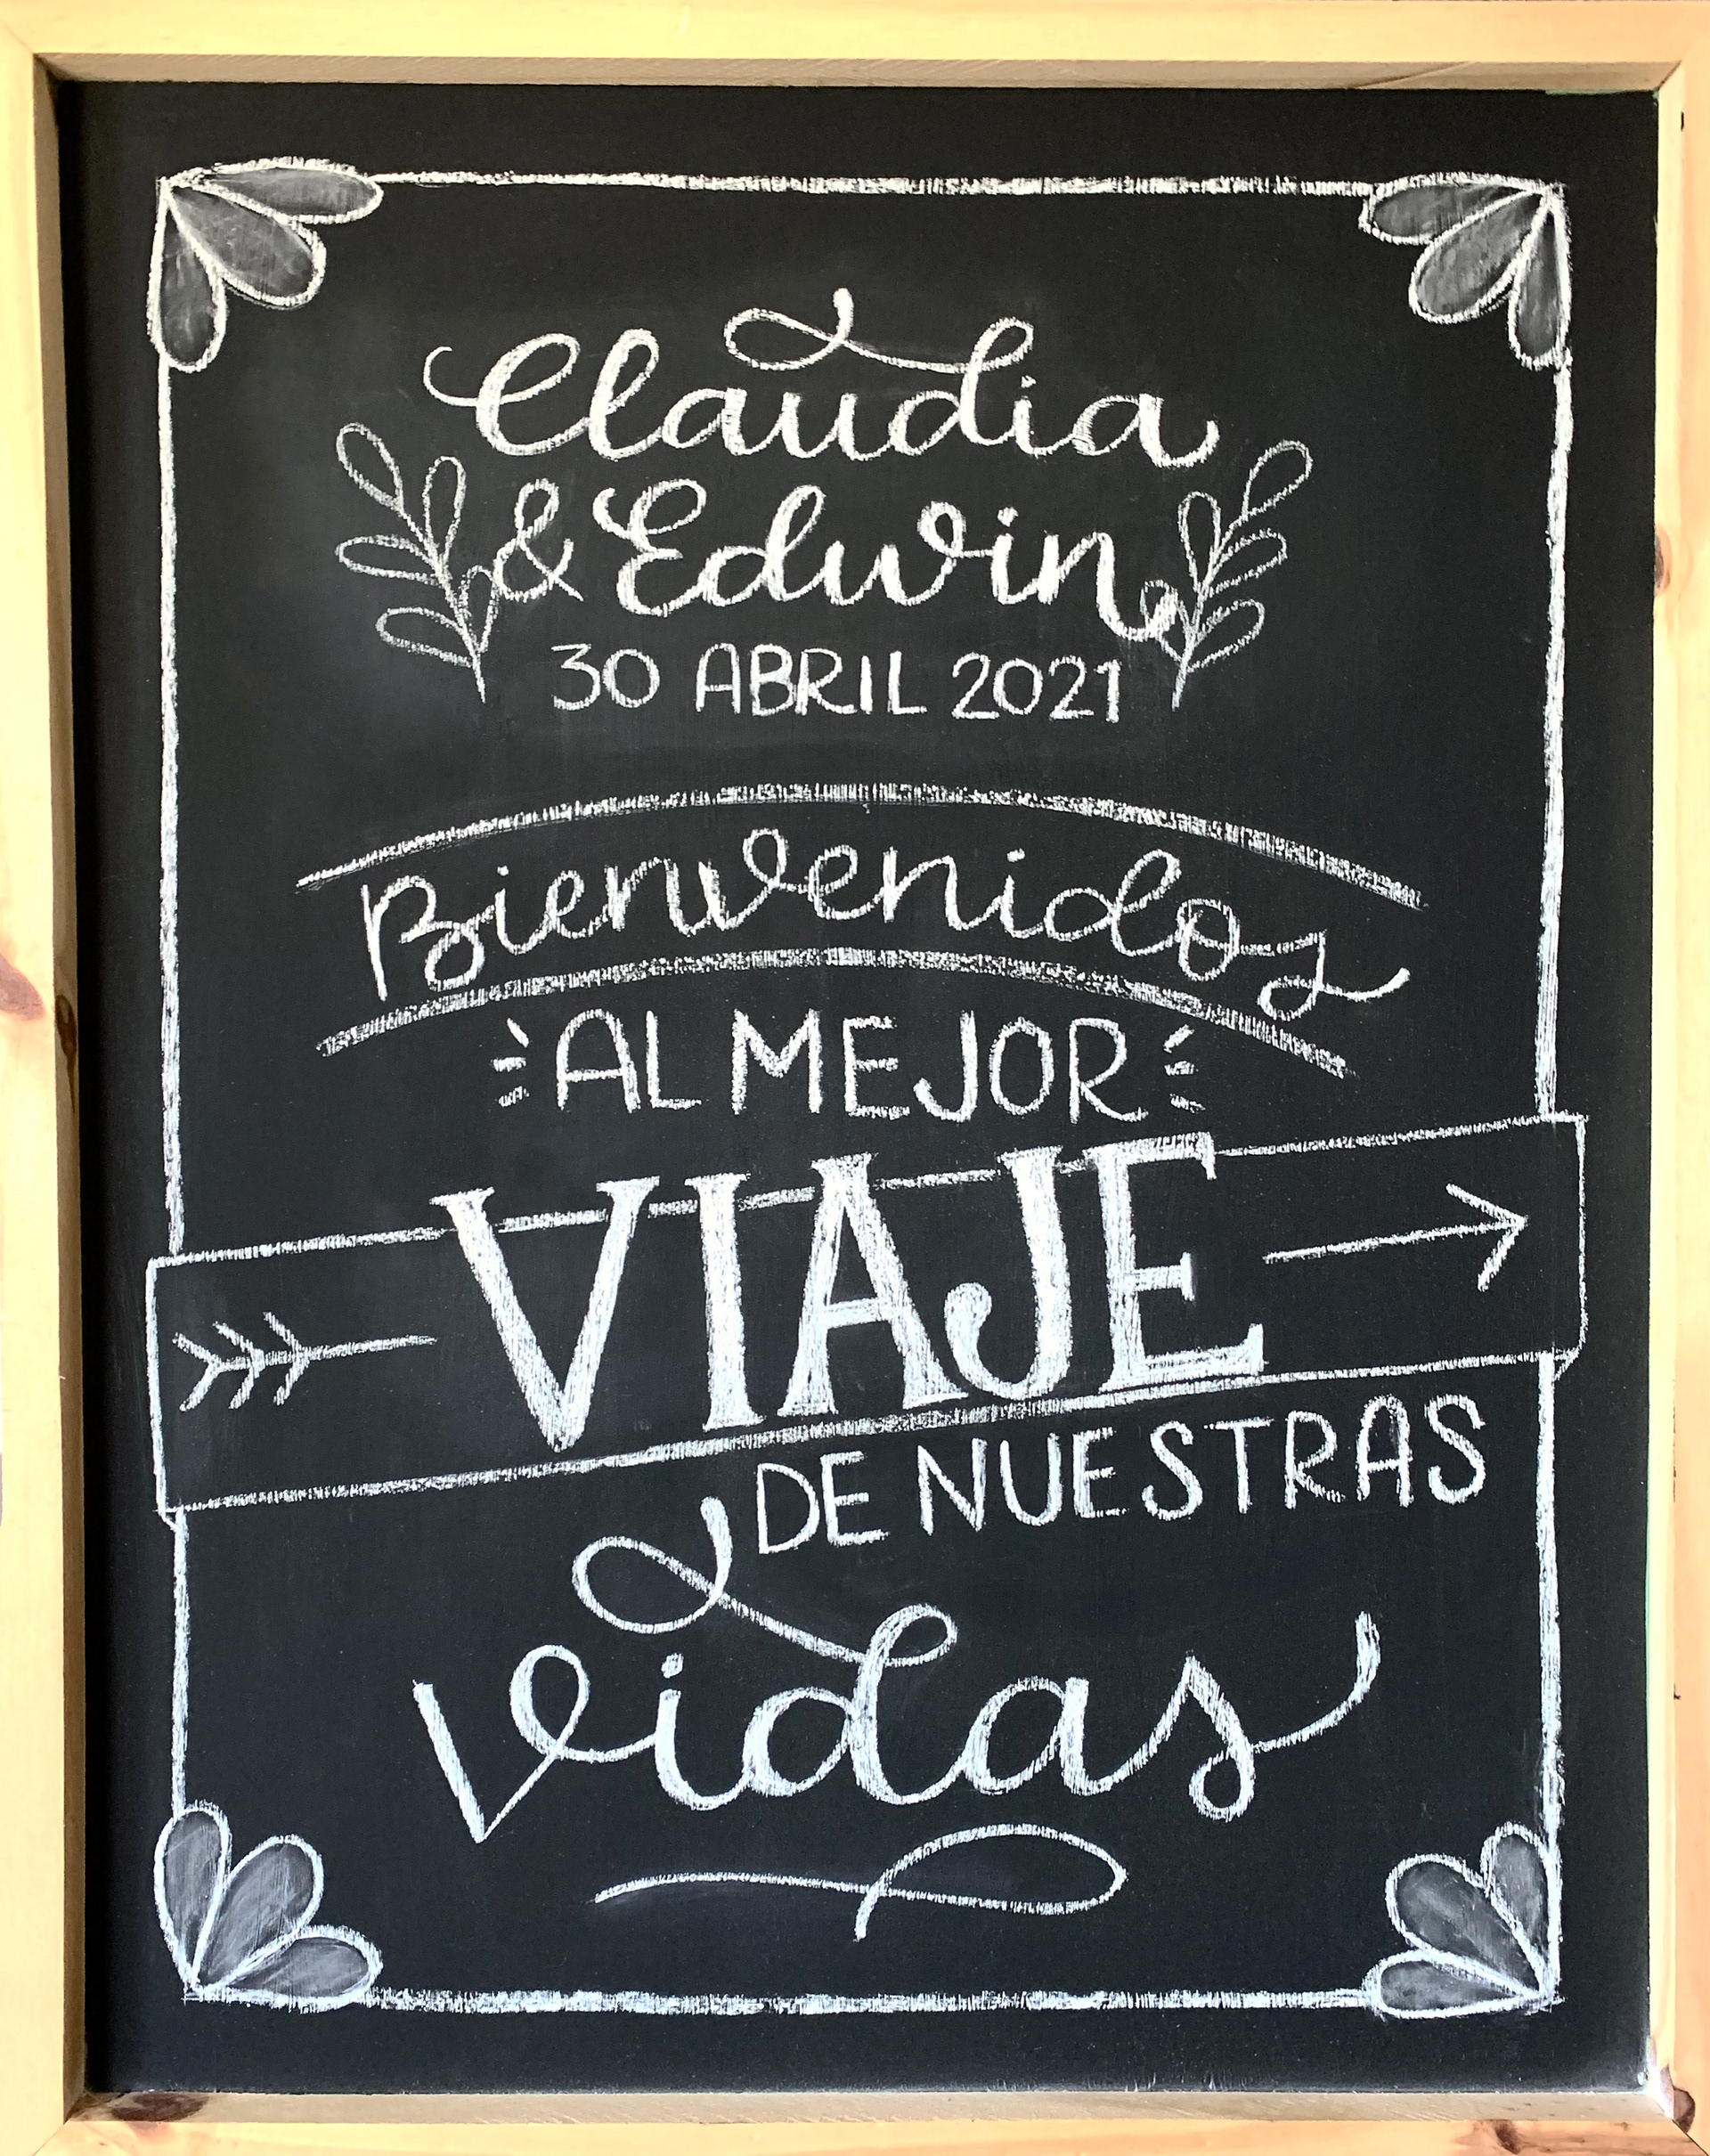 Claudia
& Edwin
30 ABRIL 2021
Bienvenidos
AL MEJOR
VIAJE
DE NUESTRAS
Vidas